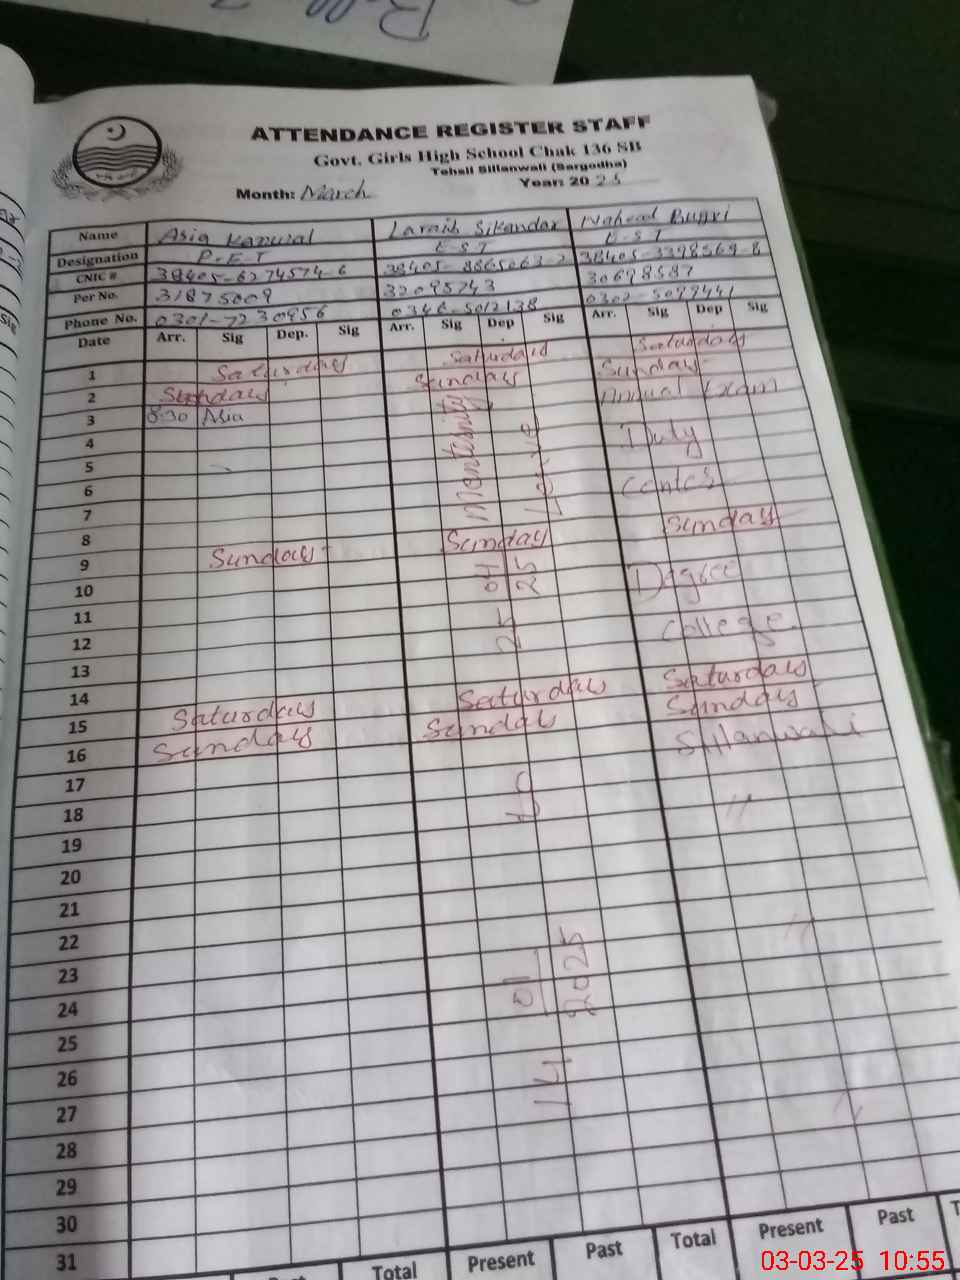 ATTENDANCE REGISTER STAFF
Govt. Girls High School Chak 136 SB
Tehsil Sillanwali (Sargodha)
Month: March Year: 2025
Name Asia Kanwal Laraib Sikandar Naheed Bugri
Designation P.E.T E.S.T E.S.T
CNIC # 38405-6274574-6 38405-8865063-2 38405-3398569-8
Per No. 31875009 32095743 30698587
Phone No. 0301-7230956 0346-5012138 0302-5099441
Date Arr. Sig Dep. Sig Arr. Sig Dep Sig Arr. Sig Dep Sig
1 Saturday Saturday Saturday
2 Sunday Sunday Sunday
3 8:30 Asia Annual Exam
4 Duty
5
6
7
8 Sunday Sunday
9 Sunday
10 Degree
11
12 College
13
14 Saturday Saturday
15 Saturday Sunday Sunday
16 Sunday Sillanwali
17
18 "
19
20
21
22 "
23
24
25
26
27
28 "
29
30
31
Leave
25 04 25
to
14 01 2025
Total Present Past Total Present Past
03-03-25 10:55